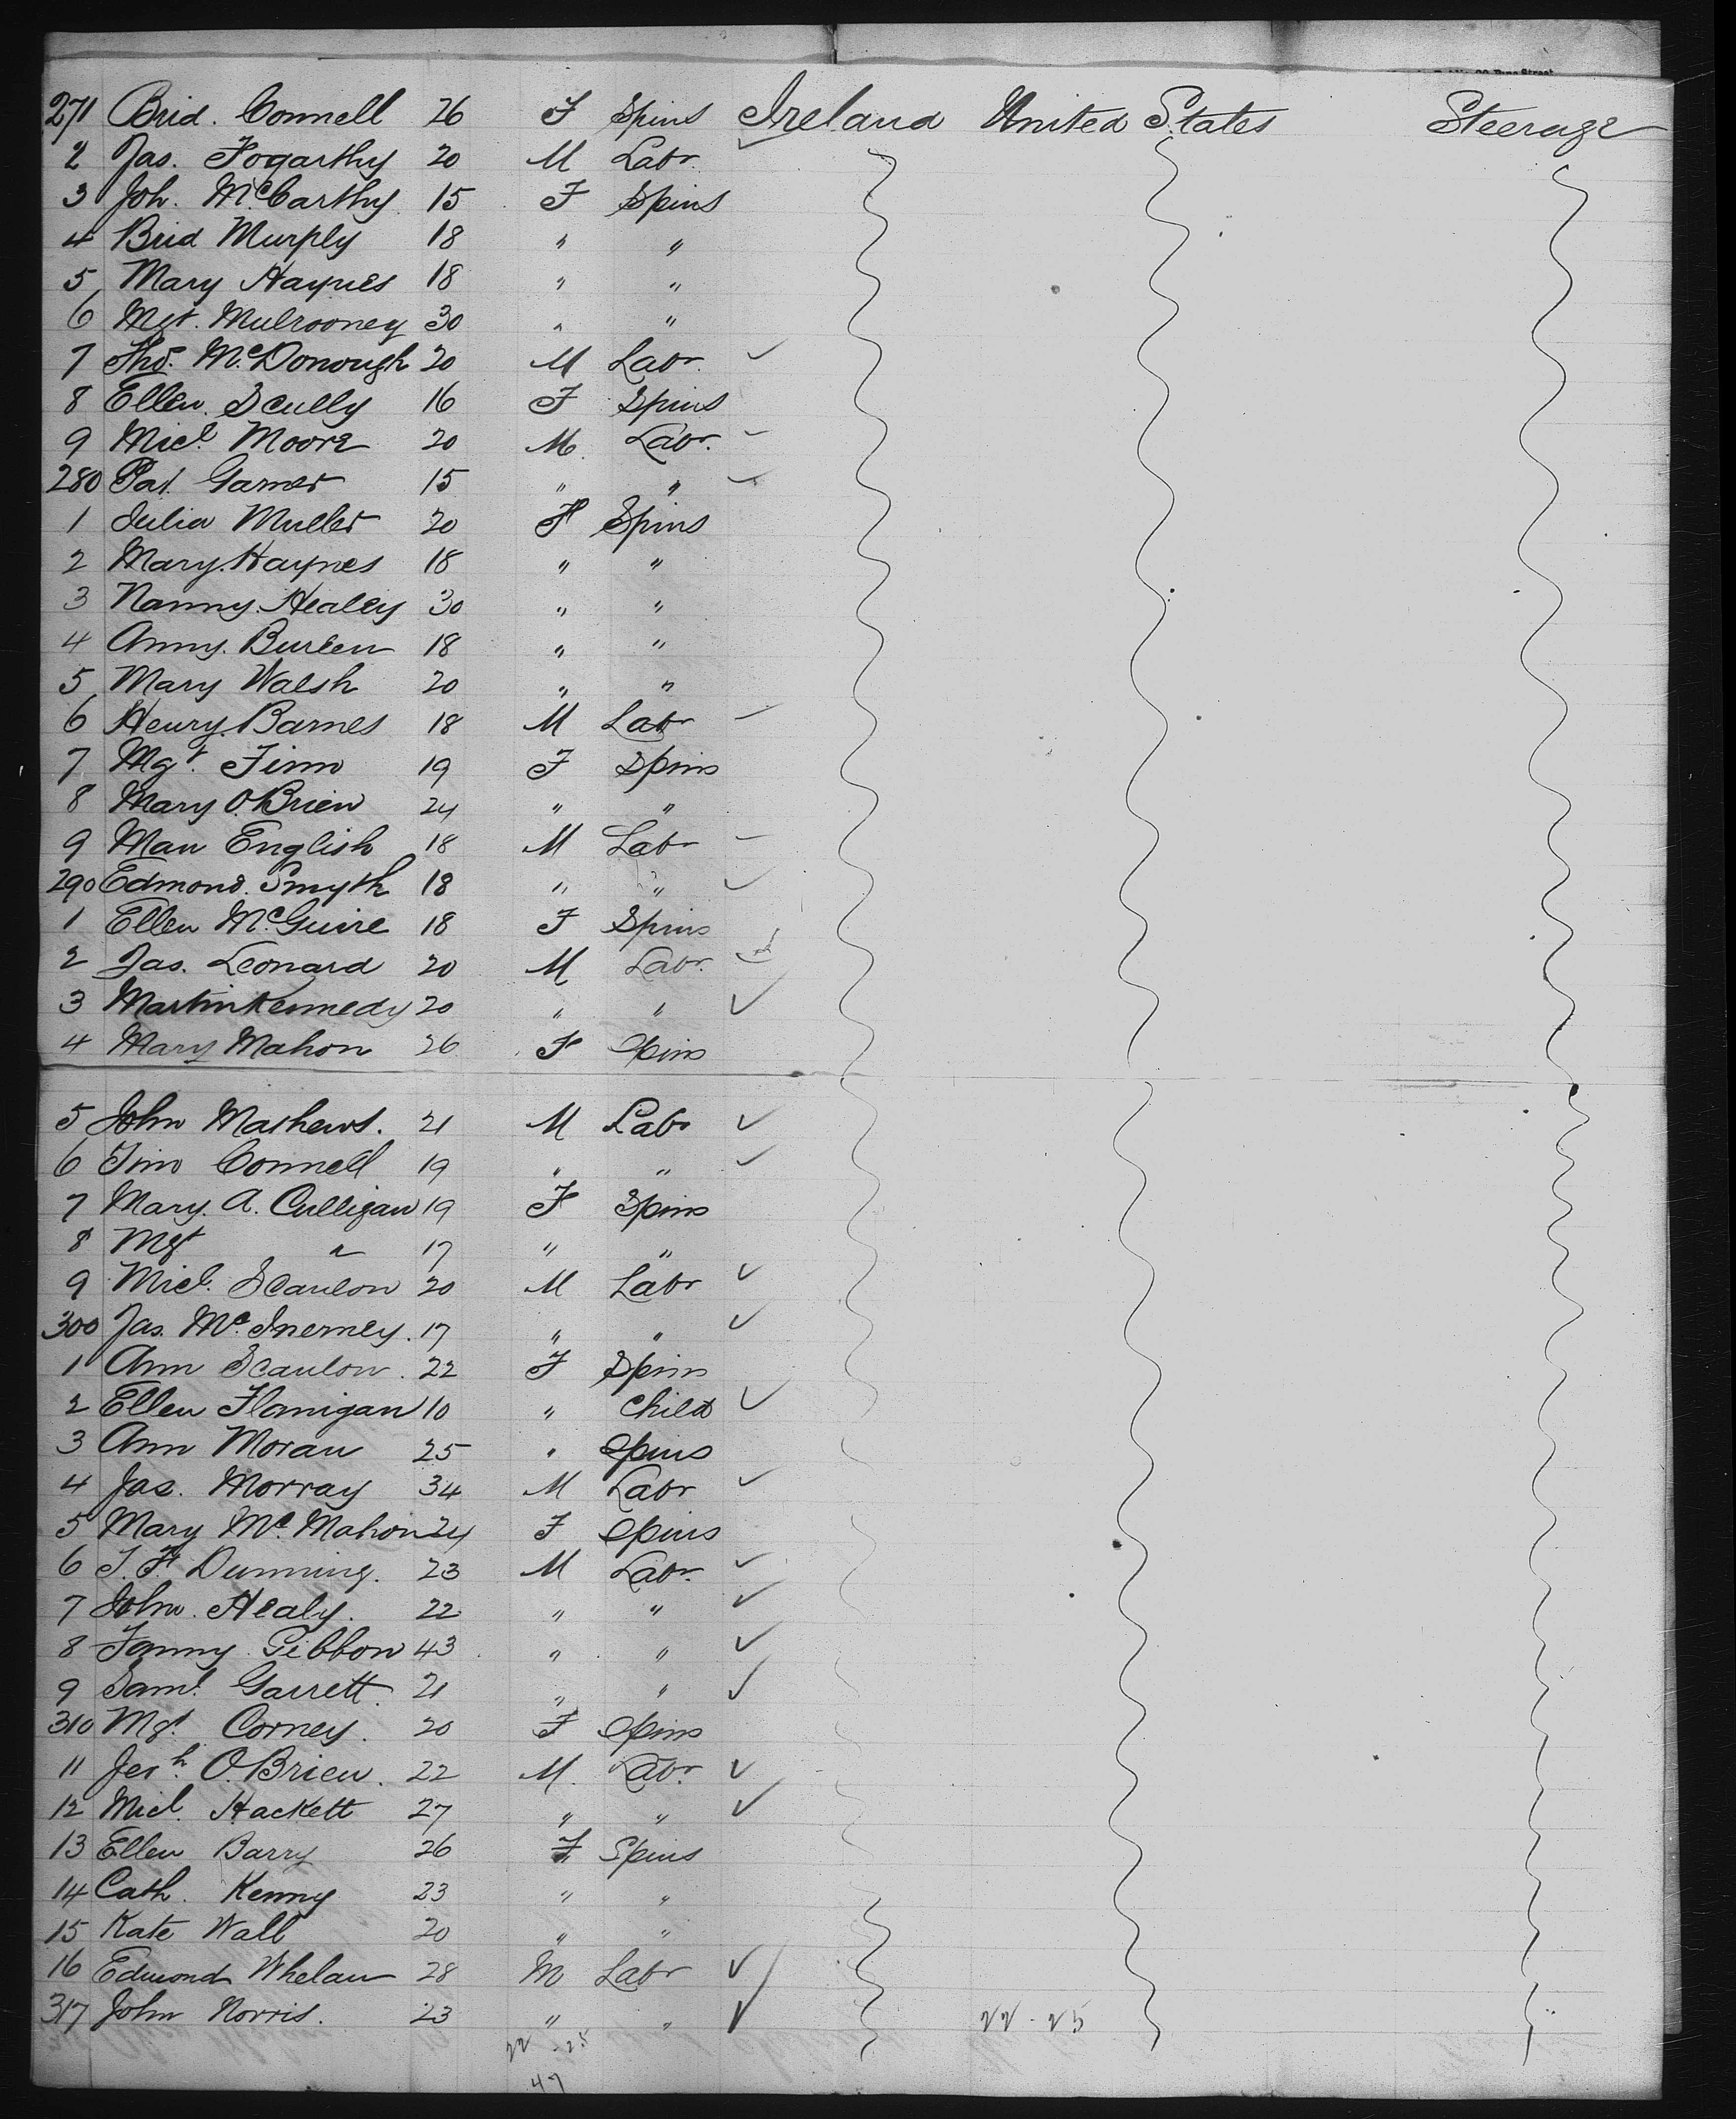 271 Brid. Connell 26 F Spins Ireland United States Steerage
2 Jas. Fogarthy 20 M Labr.
3 Joh. McCarthy 15 F Spins
4 Brid Murply 18 " "
5 Mary Haynes 18 " "
6 Mgt. Mulrooney 30 " "
7 Thos. McDonough 20 M Labr.
8 Ellen Scully 16 F Spins
9 Micl. Moore 20 M. Labr.
280 Pat. Garner 15 " "
1 Julia Muller 20 F Spins
2 Mary. Haynes 18 " "
3 Nanny. Healey 30 " "
4 Anny. Burken 18 " "
5 Mary Walsh 20 " "
6 Henry. Barnes 18 M Labr
7 Mgt. Finn 19 F Spins
8 Mary O.Brien 24 " "
9 Mau English 18 M Labr
290 Edmond. Smyth 18 " "
1 Ellen McGuire 18 F Spins
2 Jas. Leonard 20 M Labr.
3 Martin Kennedy 20 " "
4 Mary Mahon 26 F Spins
5 John Mathews. 21 M Labr
6 Tim Connell 19 " "
7 Mary. A. Culligan 19 F Spins
8 Mgt " 17 " "
9 Micl. Scanlon 20 M Labr
300 Jas. McInerney. 17 " "
1 Ann Scanlon. 22 F Spins
2 Ellen Flanigan 10 " Child
3 Ann Moran 25 " Spins
4 Jas. Morray 34 M Labr
5 Mary McMahon 24 F Spins
6 T. F. Dunning. 23 M Labr.
7 John. Healy. 22 " "
8 Fanny Gibbon 43 " "
9 Saml. Garrett. 21 " "
310 Mgt. Corney. 20 F Spins
11 Jerh. O.Brien. 22 M. Labr.
12 Micl. Hackett 27 " "
13 Ellen Barry 26 F Spins
14 Cath. Kenny 23 " "
15 Kate Wall 20 " "
16 Edmond Whelan 28 M Labr
317 John Norris. 23 " " 22 - 25
22 - 25
47